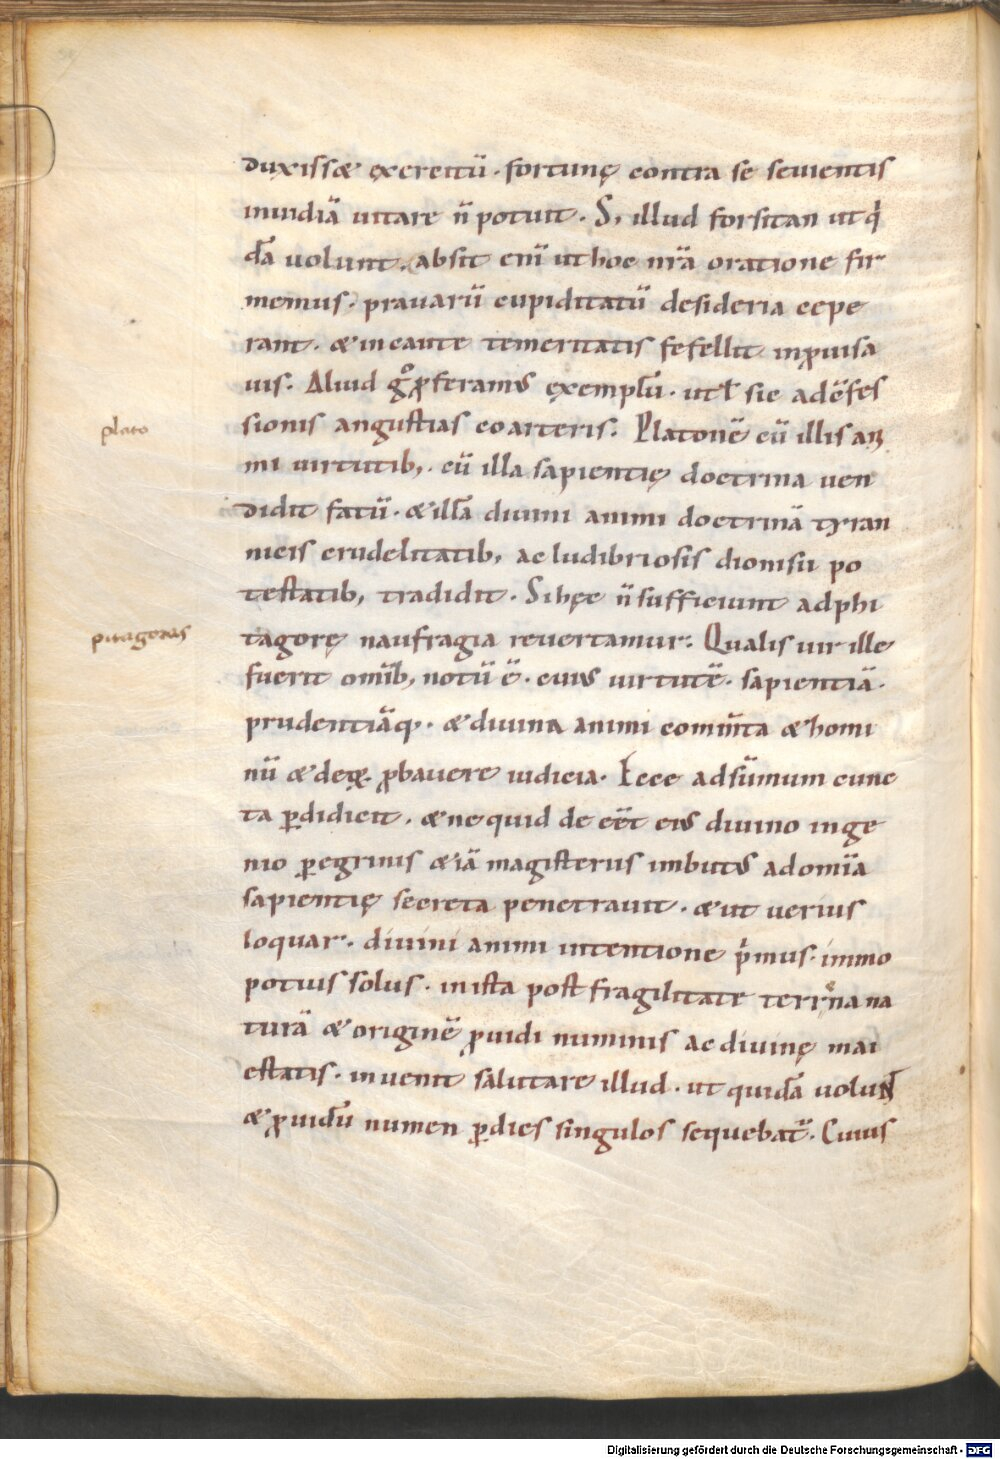 duxissæ exercitū · fortunę contra se sevientis
inuidiā uitare n̄ potuit · S; illud forsitan ut qͥ
dā uolunt · absit enī ut hoc nr̄a oratione fir
memus · pravarū cupiditatū desideria cepe
rant · & incaute temeritatis fefellit inꝓuisa
uis · Aliud gͦ ꝓferamus exemplū · ut ł sic adc̄fes
sionis angustias coarteris · Platonē cū illis aꝶ
mi virtutib; · cū illa sapientię doctrina uen
didit fatū · & illā diuini animi doctrinā tyran
nicis crudelitatib; ac ludibriosis dionisii po
testatib; tradidit · Si hęc n̄ sufficiunt ad phi
plato
tagorę naufragia revertamur · Qualis uir ille
pitagoras
fuerit omīb; notū ē · cuius uirtutē · sapientiā ·
prudentiāq; · & diuina animi com̄ta & homi
nū & deoꝝ ꝓbavere iudicia · Hec ad sūmum cunc
ta ꝑdidicit · & ne quid deēēt eius diuino inge
nio ꝑegrinis & iā magisteriis imbutus ad om̄ia
sapientię secreta penetrauit · & ut verius
loquar · diuini animi intentione pͥmus · immo
potius solus · in ista post fragilitate terrena na
turā & originē ꝓuidi numinis ac diuinę mai
estatis · invenit salutare illud · ut quidā uolunt
& ꝓuidū numen ꝑ dies singulos sequebat᷑ · Cuius
Digitalisierung gefördert durch die Deutsche Forschungsgemeinschaft - DFG